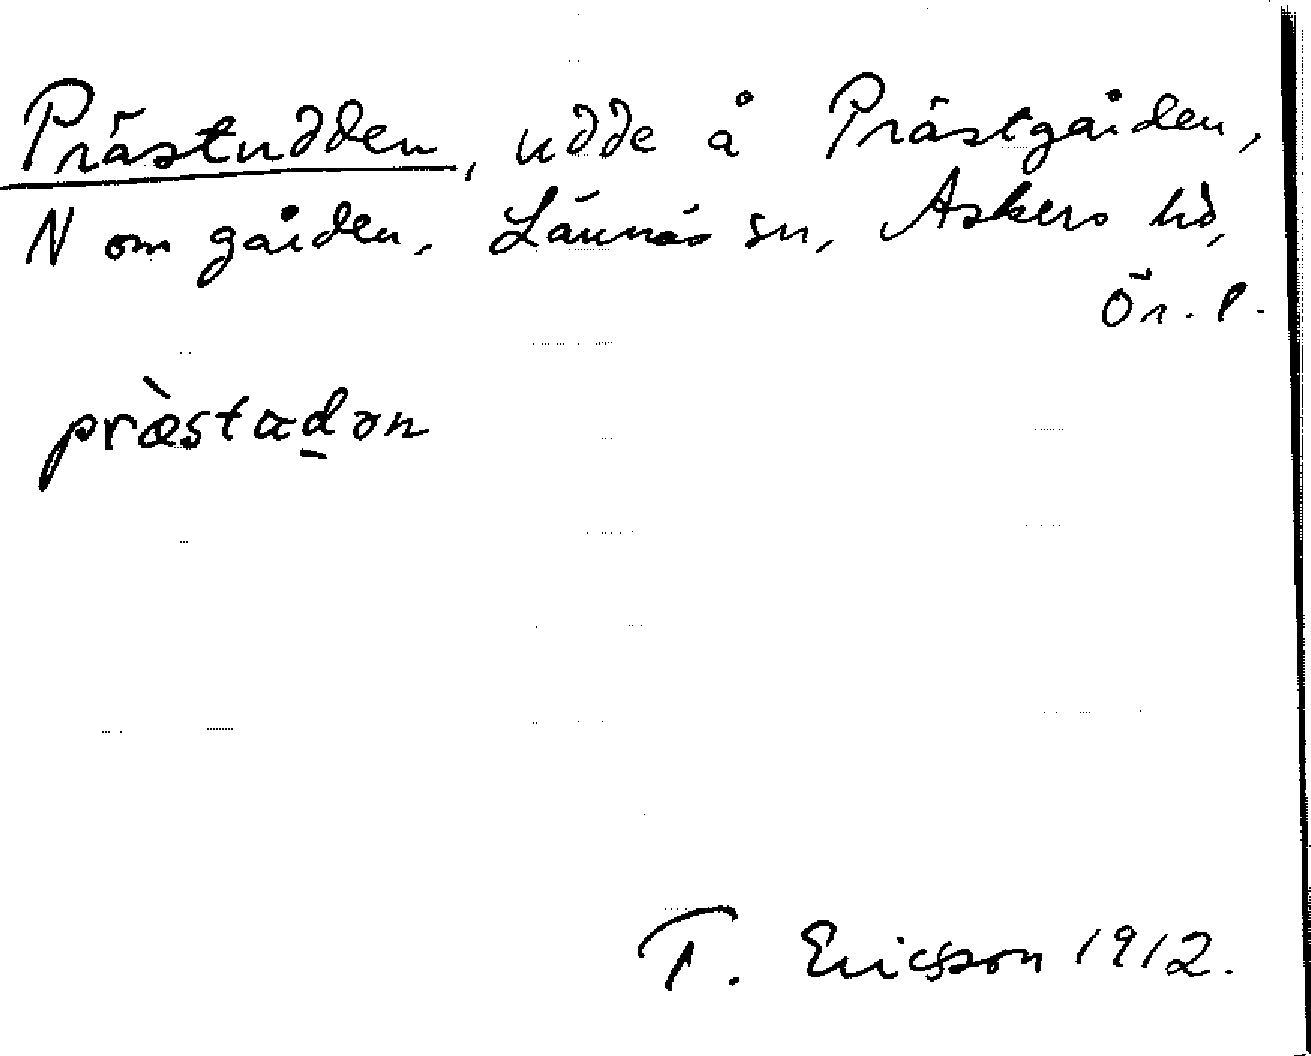 Prästudden, udde å Prästgården,
N om gården. Lännäs sn, Askers hd,
Ör. l.
præ̀stadən
T. Ericsson 1912.